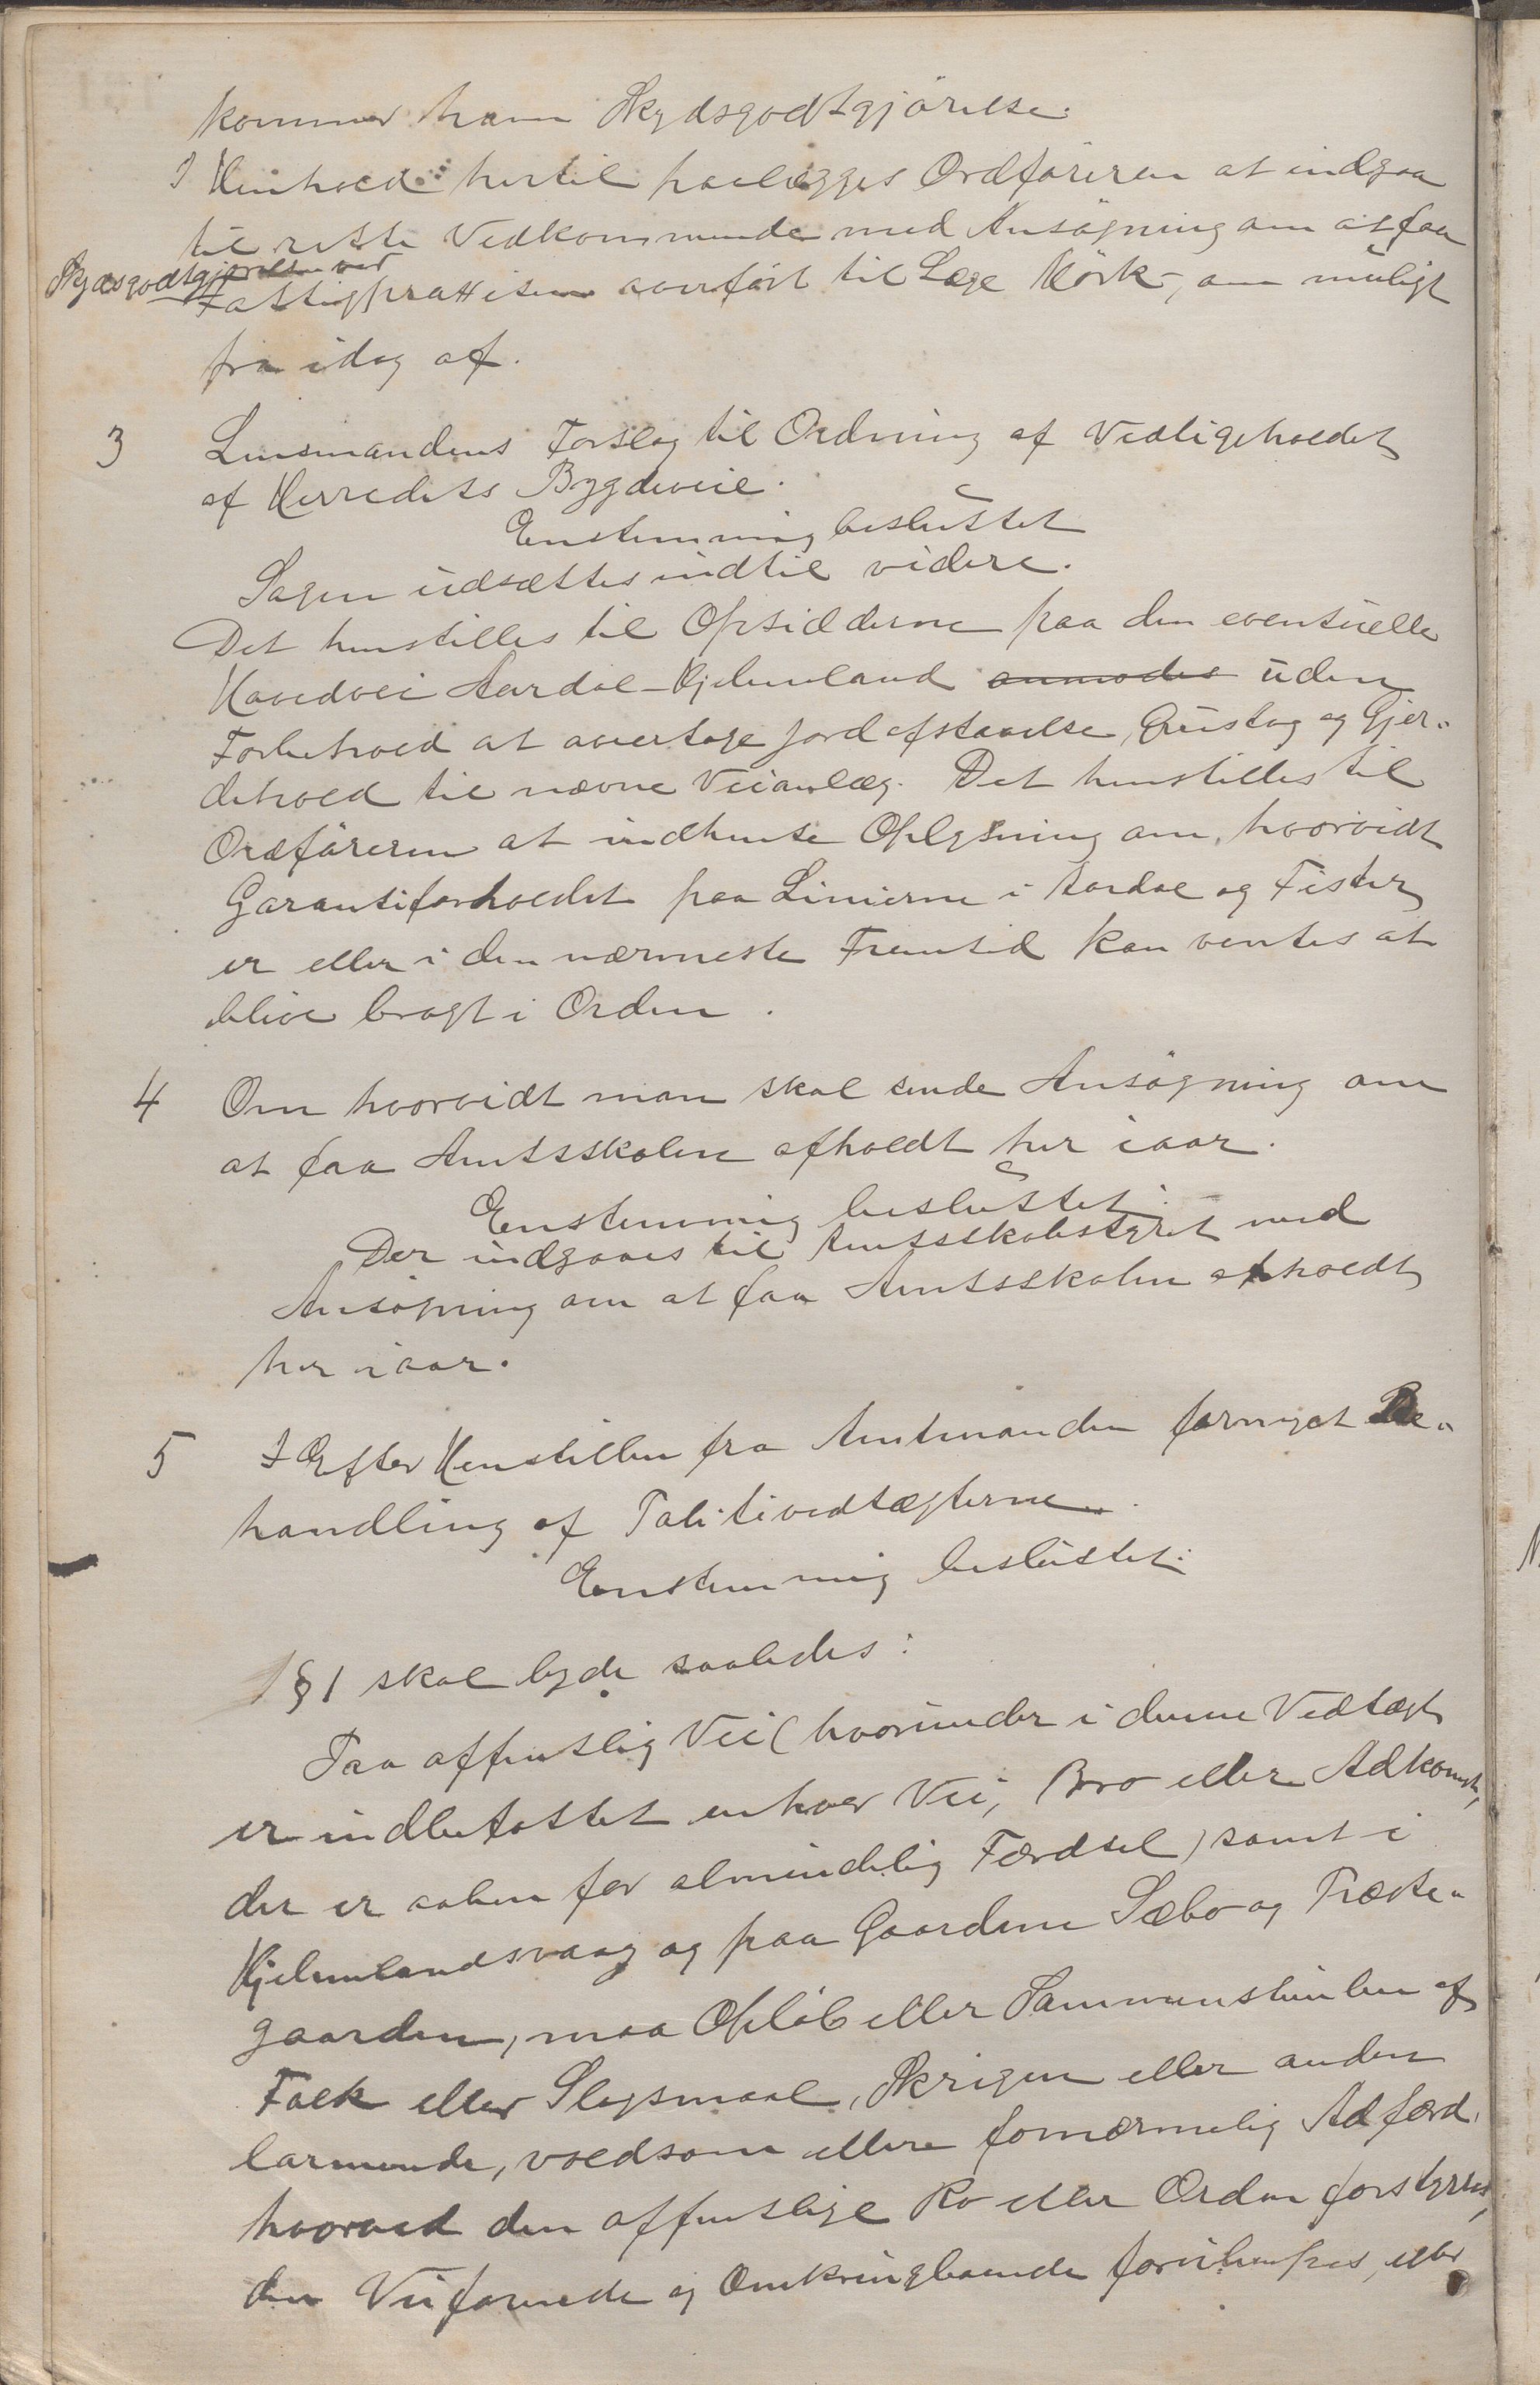 kommer ham Skydsgodtgjörelse.
I Henhold hertil paalægges Ordföreren at indgaa
til rette Vedkommende med Ansögning om at faa
Skydsgodtgjörelsen ved
Fattigpraxisen overfört til Læge Mörk, om muligt
fra idag af.
3 Lensmandens Forslag til Ordning af Vedligeholdet
af Herredets Bygdeveie.
Enstemmig besluttet
Sagen udsættes indtil videre.
Det henstilles til Opsidderne paa den eventuelle
Hovedvei Aardal-Hjelmeland anmodes uden
Forbehold at overtage Jordafstaaelse, Grustag og Gjer-
dehold til nævne Veianlæg. Det henstilles til
Ordföreren at indhente Oplysning om, hvorvidt
Garantiforholdet paa Linierne i Aardal og Fister
er eller i den nærmeste Fremtid kan ventes at
blive bragt i Orden.
4 Om hvorvidt man skal sende Ansögning om
at faa Amtsskolen afholdt her iaar.
Enstemmig besluttet:
Der indgaaes til Amtsskolestyret med
Ansögning om at faa Amtsskolen afholdt
her iaar.
5 I Efter Henstillen fra Amtmanden fornyet Be-
handling af Politivedtægterne.
Enstemmig besluttet:
§ 1 skal lyde saaledes:
Paa offentlig Vei (hvorunder i denne Vedtægt
er indbefattet enhver Vei, Bro eller Adkomst,
der er aaben for almindelig Færdsel) samt i
Hjelmelandsvaag og paa Gaardene Sæbo og Præste-
gaarden, maa Opløb eller Sammenstimlen af
Folk eller Slagsmaal, Skrigen eller anden
larmende, voldsom ellere fornærmelig Adfærd,
hvorved den offentlige Ro eller Orden forstyrres,
den Veifarende og Omkringboende forulempes, eller